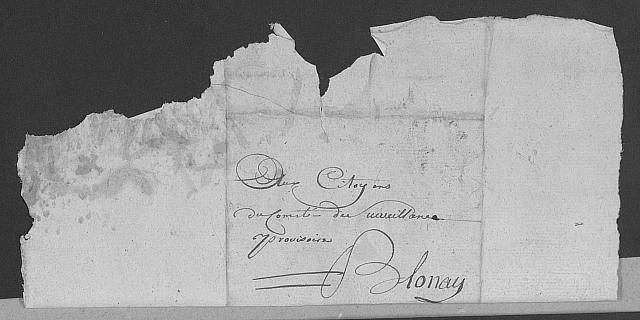 Aux Citoyens
du Comité de Surveillance
provisoire
Blonay